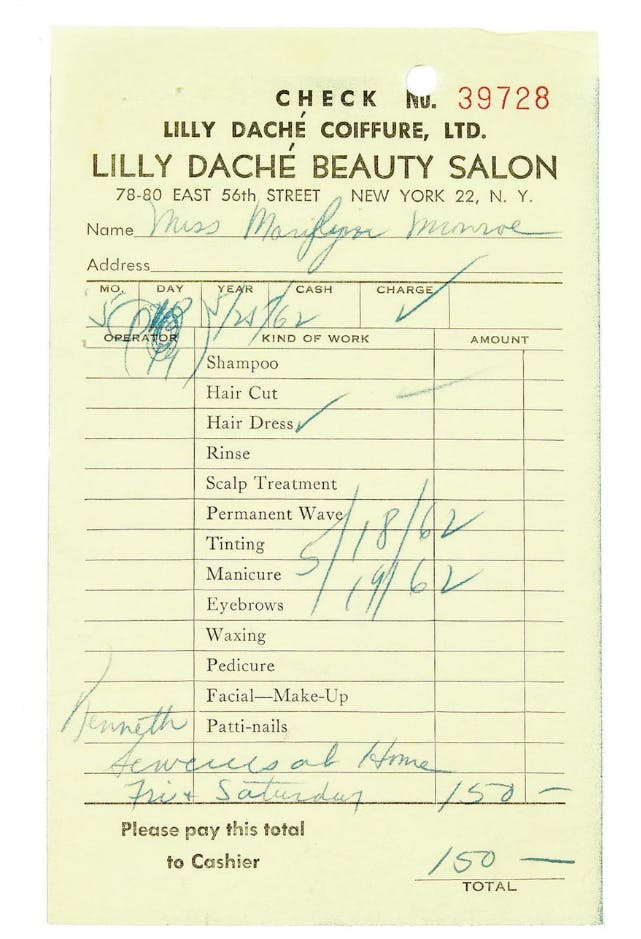 CHECK No. 39728
LILLY DACHÉ COIFFURE, LTD.
LILLY DACHÉ BEAUTY SALON
78-80 EAST 56th STREET NEW YORK 22, N. Y.
Name Miss Marilyn Monroe
Address
MO. DAY YEAR CASH CHARGE
5 5/21/62 ✓
OPERATOR KIND OF WORK AMOUNT
19
Shampoo
Hair Cut
Hair Dress ✓
Rinse
Scalp Treatment
Permanent Wave
5/18/62
Tinting
Manicure
19/62
Eyebrows
Waxing
Pedicure
Facial—Make-Up
Kenneth Patti-nails
Services at Home
Fri + Saturday 150 —
Please pay this total
to Cashier
150 —
TOTAL